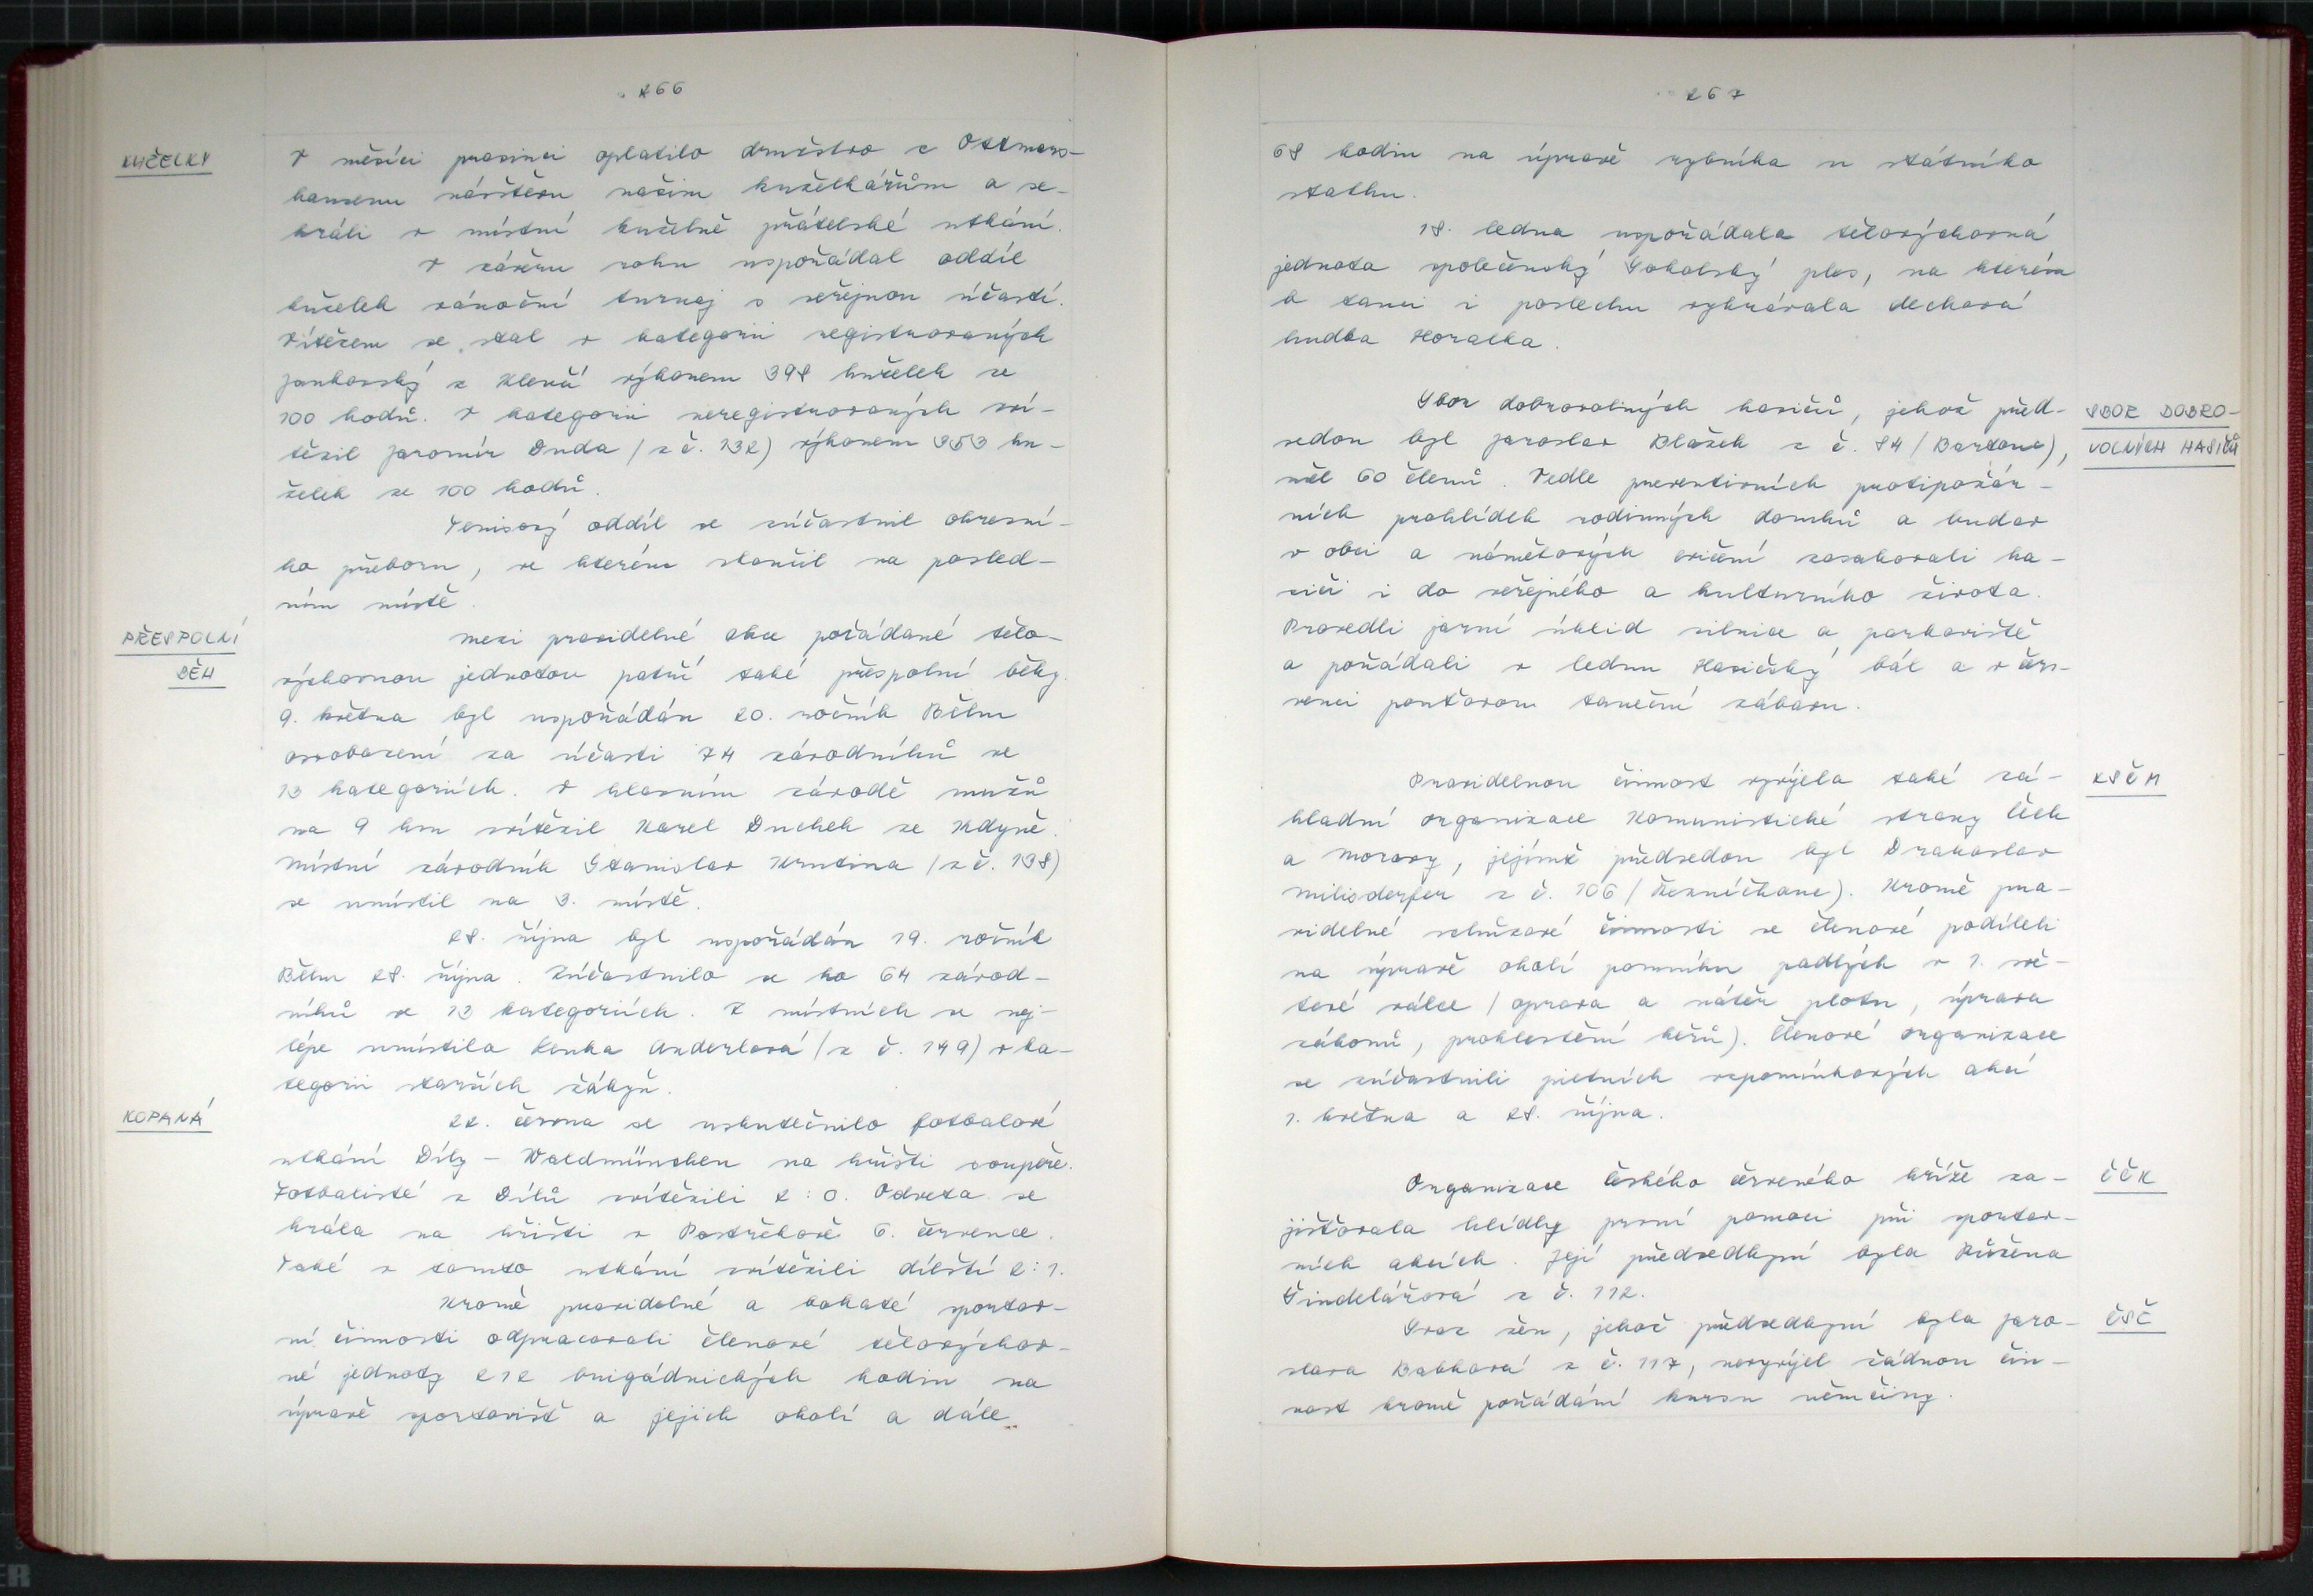 266
KUŽELKY
V měsíci prosinci oplatilo družstvo z Ottmars-
hausenu návštěvu našim kuželkářům a se-
hráli v místní kuželně přátelské utkání.
V závěru roku uspořádal oddíl
kuželek vánoční turnaj s veřejnou účastí.
Vítězem se stal v kategorii registrovaných
Jankovský z Klenčí výkonem 398 kuželek ze
100 hodů. V kategorii neregistrovaných zví-
tězil Jaromír Duda /z č. 132) výkonem 353 ku-
želek ze 100 hodů.
Tenisový oddíl se zúčastnil okresní-
ho přeboru, ve kterém skončil na posled-
ním místě.
PŘESPOLNÍ
BĚH
Mezi pravidelné akce pořádané tělo-
výchovnou jednotou patří také přespolní běhy.
9. května byl uspořádán 20. ročník Běhu
osvobození za účasti 74 závodníků ve
13 kategoriích. V hlavním závodě mužů
na 9 km zvítězil Karel Duchek ze Kdyně.
Místní závodník Stanislav Krutina /z č. 138)
se umístil na 3. místě.
28. října byl uspořádán 19. ročník
Běhu 28. října. Zúčastnilo se ho 64 závod-
níků ve 13 kategoriích. Z místních se nej-
lépe umístila Lenka Anderlová /z č. 149) v ka-
tegorii starších žákyň.
KOPANÁ
22. června se uskutečnilo fotbalové
utkání Díly - Waldmünchen na hřišti soupeře.
Fotbalisté z Dílů zvítězili 2:0. Odveta se
hrála na hřišti v Postřekově 6. července.
Také v tomto utkání zvítězili dílští 2:1.
Kromě pravidelné a bohaté sportov-
ní činnosti odpracovali členové tělovýchov-
né jednoty 212 brigádnických hodin na
úpravě sportovišť a jejich okolí a dále
267
68 hodin na úpravě rybníka u státního
statku.
18. ledna uspořádala tělovýchovná
jednota společenský Sokolský ples, na kterém
k tanci i poslechu vyhrávala dechová
hudba Horalka.
Sbor dobrovolných hasičů, jehož před-
sedou byl Jaroslav Blažek z č. 84 /Bartona),
měl 60 členů. Vedle preventivních protipožár-
ních prohlídek rodinných domků a budov
v obci a námětových cvičení zasahovali ha-
siči i do veřejného a kulturního života.
Provedli jarní úklid silnice a parkoviště
a pořádali v lednu Hasičský bál a v čer-
venci pouťovou taneční zábavu.
SBOR DOBRO-
VOLNÝCH HASIČŮ
Pravidelnou činnost vyvíjela také zá-
kladní organizace Komunistické strany Čech
a Moravy, jejímž předsedou byl Drahoslav
Milisderfer z č. 106 /Řezníčkane). Kromě pra-
videlné schůzové činnosti se členové podíleli
na úpravě okolí pomníku padlých v 1. svě-
tové válce /oprava a nátěr plotu, úprava
záhonů, proklestění keřů). Členové organizace
se zúčastnili pietních vzpomínkových akcí
1. května a 28. října.
KSČM
Organizace Českého červeného kříže za-
jišťovala hlídky první pomoci při sportov-
ních akcích. Její předsedkyní byla Růžena
Šindelářová z č. 112.
ČČK
Svaz žen, jehož předsedkyní byla Jaro-
slava Babková z č. 117, nevyvíjel žádnou čin-
nost kromě pořádání kursu němčiny.
ČSČ